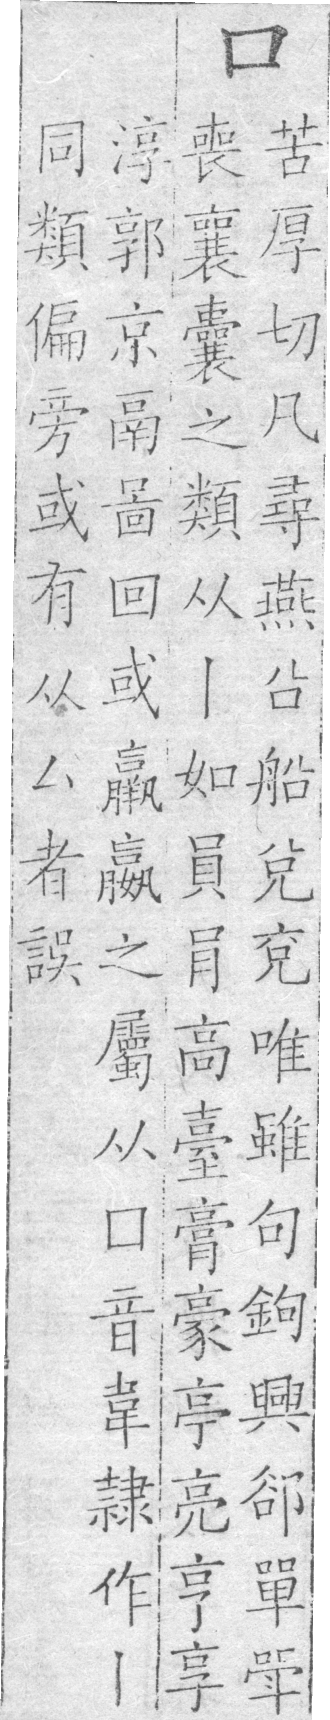 口
苦厚切凡尋燕㕣船兌兗唯雖句鉤興郤單斝
喪襄囊之類从丨如員肙高臺膏豪亭亮亨享
淳郭京鬲啚回或羸嬴之屬从囗音韋隷作丨
同類偏旁或有从厶者誤